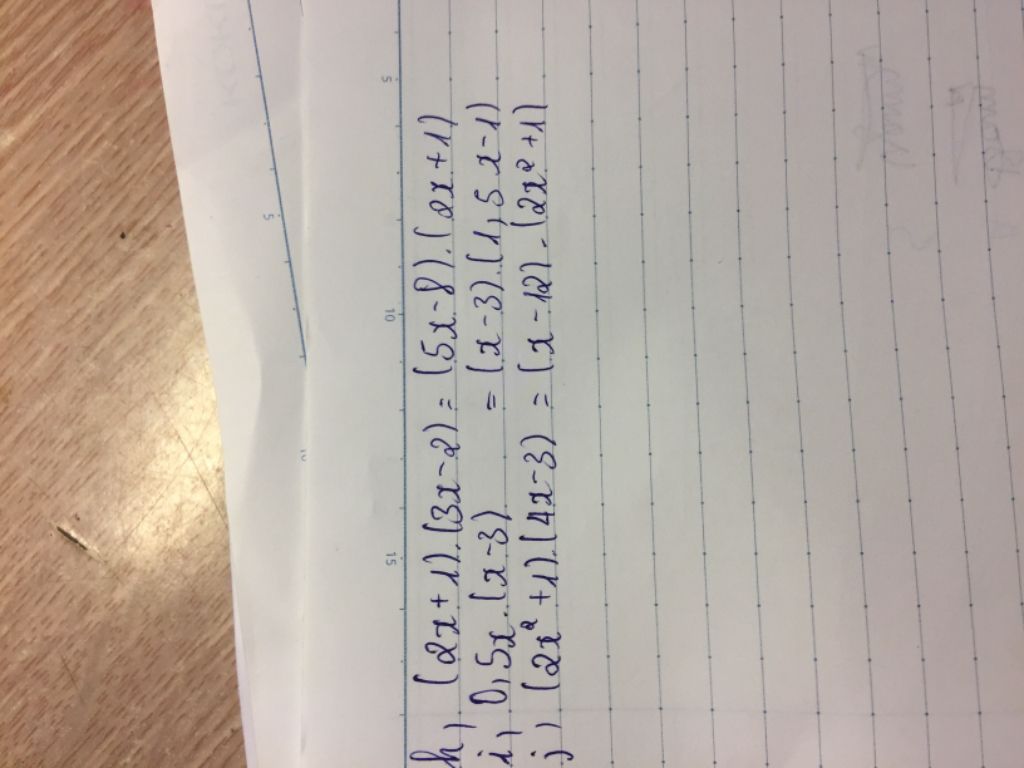 h) (2x+1).(3x-2) = (5x-8).(2x+1)
i) 0,5x.(x-3) = (x-3).(1,5x-1)
j) (2x²+1).(4x-3) = (x-12).(2x²+1)
5
10
15
5
10